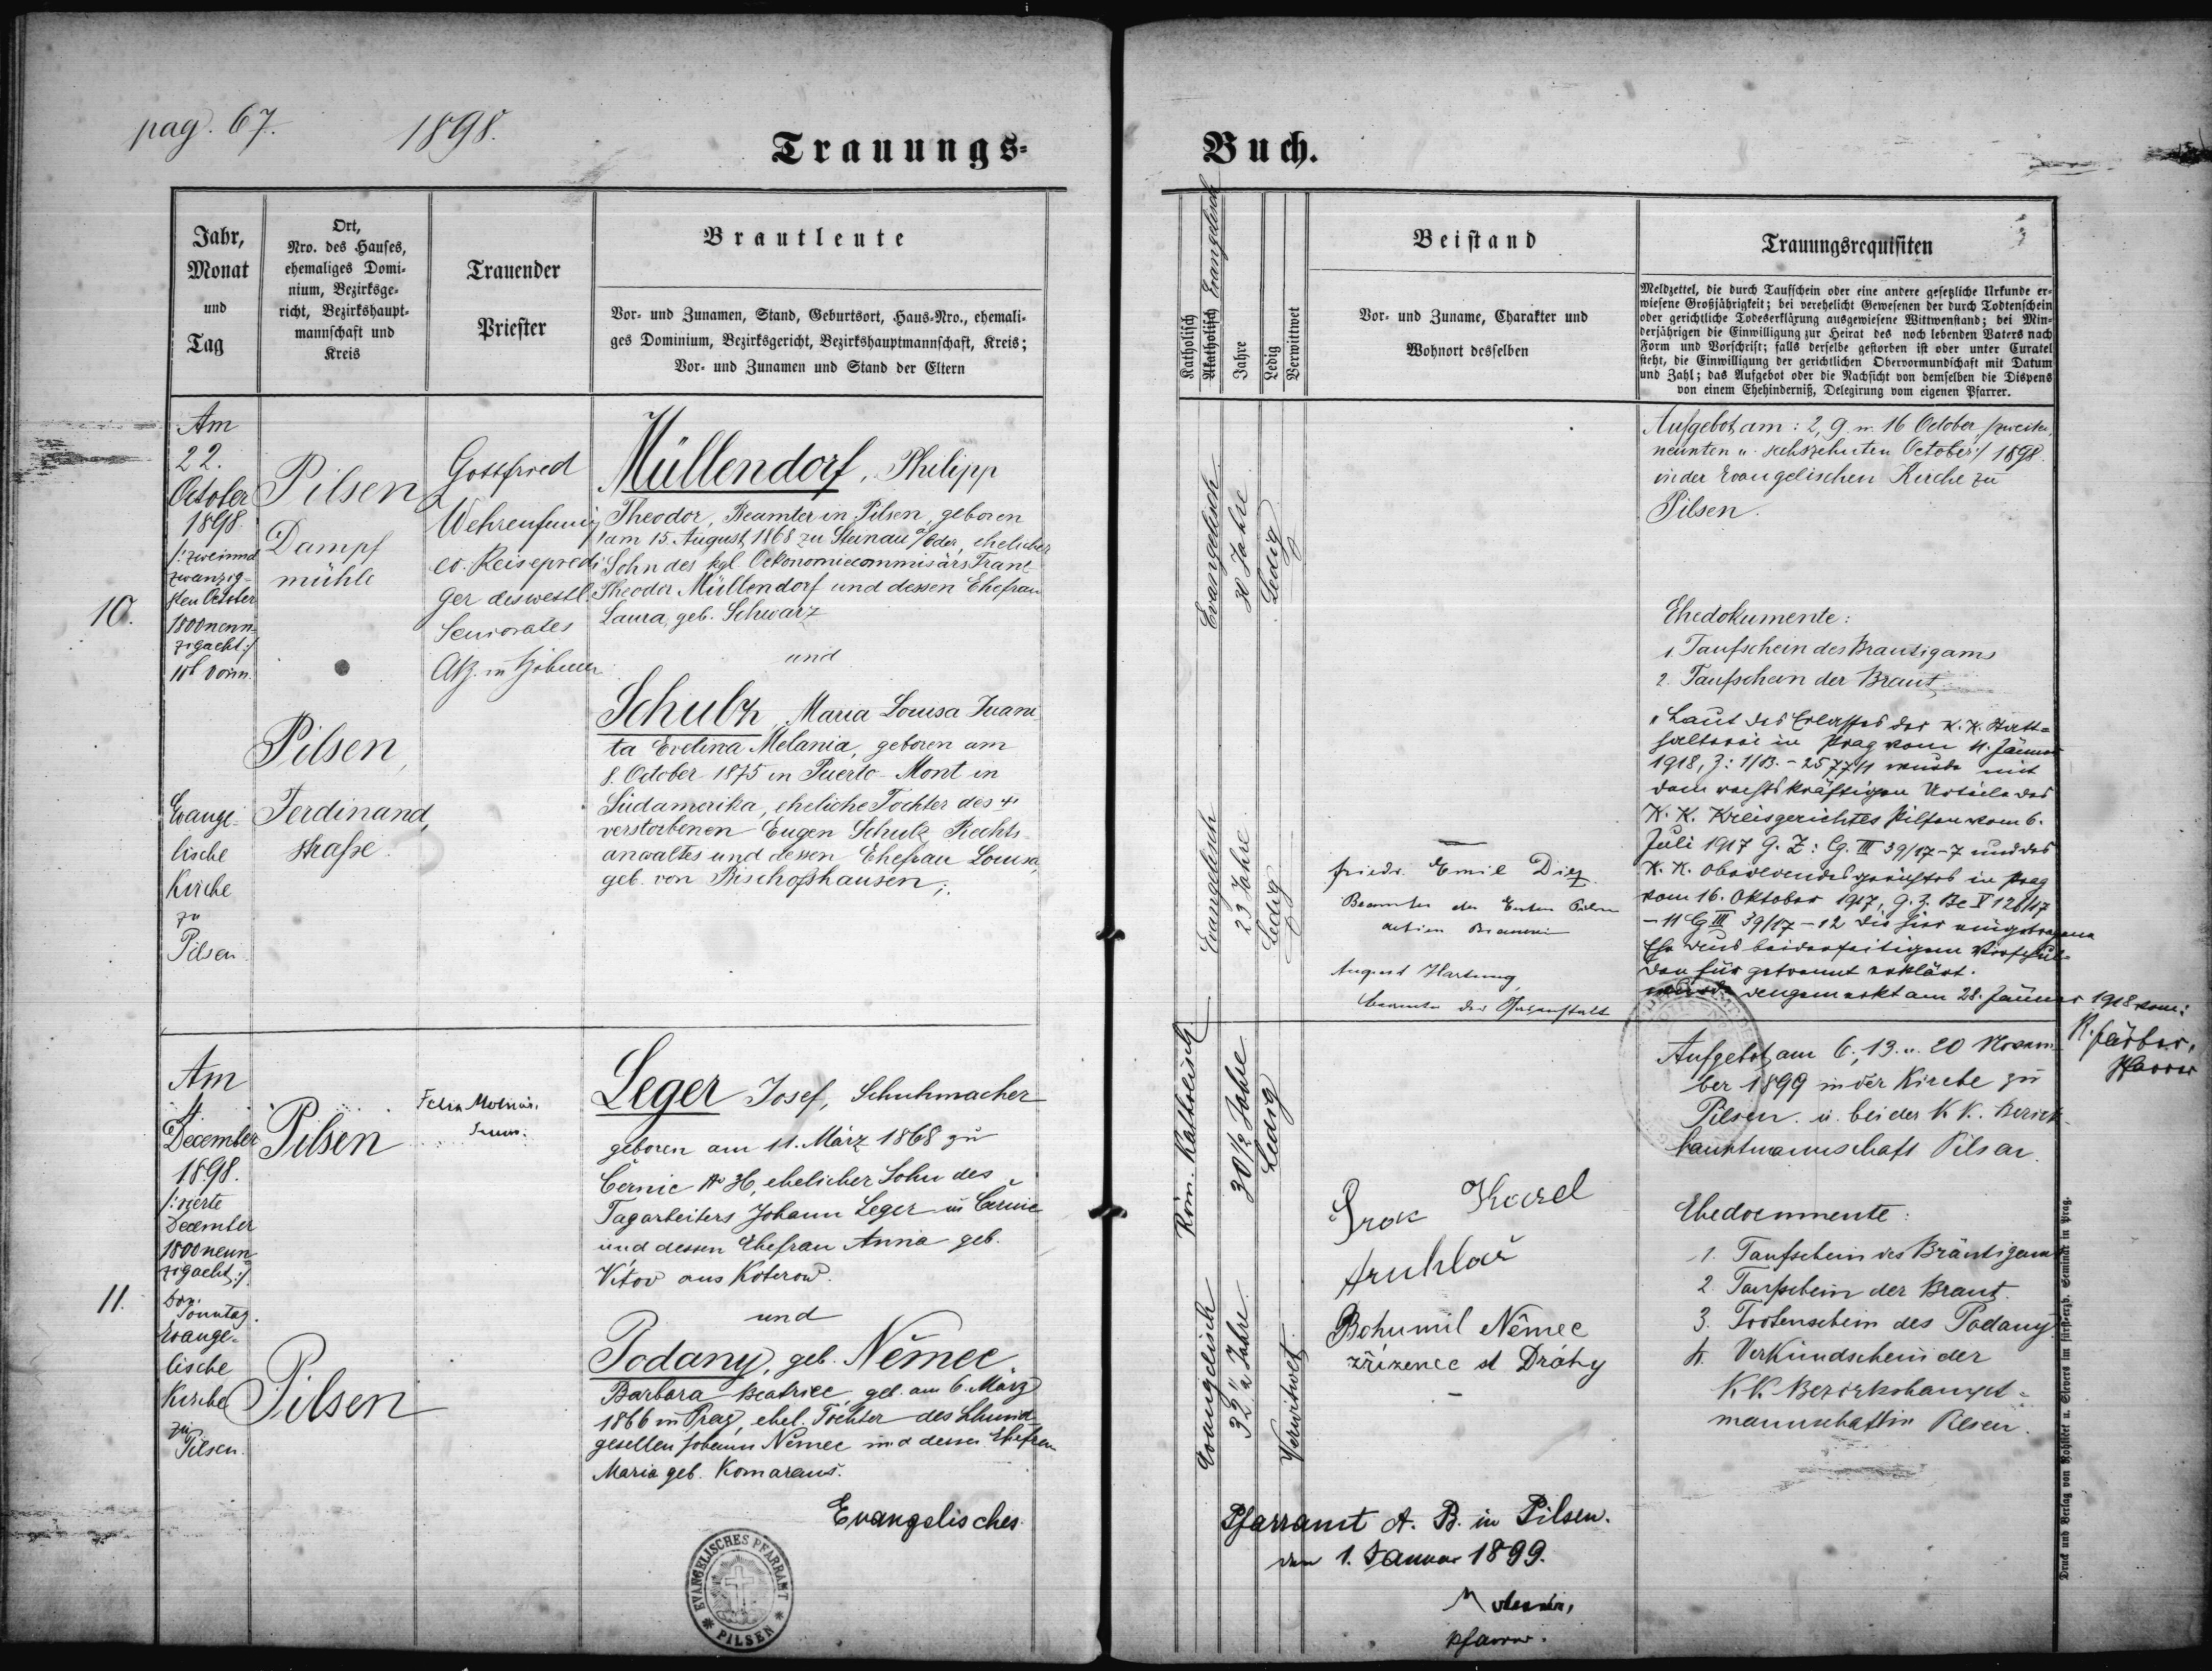 pag. 67.
1898.
Trauungs-
Buch.
Jahr,
Monat
und
Tag
Ort,
Nro. des Hauses,
ehemaliges Domi-
nium, Bezirksge-
richt, Bezirkshaupt-
mannschaft und
Kreis
Trauender
Priester
Brautleute
Vor- und Zunamen, Stand, Geburtsort, Haus-Nro., ehemali-
ges Dominium, Bezirksgericht, Bezirkshauptmannschaft, Kreis;
Vor- und Zunamen und Stand der Eltern
Katholisch
Akatholisch Evangelisch
Jahre
Ledig
Verwittwet
Beistand
Vor- und Zuname, Charakter und
Wohnort desselben
Trauungsrequisiten
Meldzettel, die durch Taufschein oder eine andere gesetzliche Urkunde er-
wiesene Großjährigkeit; bei verehelicht Gewesenen der durch Todtenschein
oder gerichtliche Todeserklärung ausgewiesene Wittwenstand; bei Min-
derjährigen die Einwilligung zur Heirat des noch lebenden Vaters nach
Form und Vorschrift; falls derselbe gestorben ist oder unter Curatel
steht, die Einwilligung der gerichtlichen Obervormundschaft mit Datum
und Zahl; das Aufgebot oder die Nachsicht von demselben die Dispens
von einem Ehehinderniß, Delegirung vom eigenen Pfarrer.
10.
Am
22.
October
1898
/: zweiund
zwanzig-
sten October
1800neun-
zigacht :/
Vorm.
Evange-
lische
Kirche
zu
Pilsen
Pilsen
Dampf
mühle
Pilsen,
Ferdinand,
straße.
Gottfried
ev. Reisepredi
ger des westl.
Seniorates
Müllendorf, Philipp
Theodor, Beamter in Pilsen, geboren
am 15. August 1868 zu Steinau a/Oder, ehelicher
Sohn des kgl. Oekonomiecommisärs Franz
Theodor Müllendorf und dessen Ehefrau
Laura, geb. Schwarz
und
Schulz, Maria Louisa Juani
ta Evelina Melania, geboren am
8. October 1875 in Puerto-Mont in
Südamerika, eheliche Tochter des +
verstorbenen Eugen Schulz Rechts-
anwaltes und dessen Ehefrau Louisa,
geb. von Bischofshausen;.
Evangelisch
30 Jahre
Ledig
Evangelisch
23 Jahre
Ledig
Friedr. Emil Diez
Beamter der Ersten Pilsner
actien Brauerei
August Hartung,
Beamter der
Aufgebot am: 2, 9 u. 16 October /zweiten,
neunten u. sechszehnten October/ 1898
in der Evangelischen Kirche zu
Pilsen.
Ehedokumente:
1. Taufschein des Brautigams
2. Taufschein der Braut
Laut des Erlasses der K. K. Statt-
halterei in Prag vom 11. Jänner
1918, Z: 1/B.-2577/1 wurde mit
dem rechtskräftigen Urteile des
K. K. Kreisgerichtes Pilsen vom 6.
Juli 1917 G. Z: Cg. III 39/17-7 und des
K. K. Oberlandesgerichtes in Prag
vom 16. Oktober 1917, G. Z. Bc V 126/17
-11 Cg III 39/17-12 die hier eingetragene
Ehe beiderseitigem Verschul-
den für getrennt erklärt.
angemerkt am 28. Jänner 1918 vom:
Pfarrer
11.
Am
4.
December
1898.
/: vierte
December
1800neun
zigacht :/
Sonntag.
Evange-
lische
Kirche
zu
Pilsen.
Pilsen
Pilsen
Leger Josef, Schuhmacher
geboren am 11. März 1868 zu
Černic No 36, ehelicher Sohn des
Tagarbeiters Johann Leger in Černic
und dessen Ehefrau Anna geb.
Vítov aus Koterow.
und
Podany, geb. Němec
Barbara Beatrice, geb. am 6. März
1866 in Prag, ehel. Tochter des
gesellen Johann Němec und dessen Ehefrau
Maria geb. Komaraus.
Röm. Katholisch
30 1/2 Jahre
Ledig
Evangelisch
32 Jahre
Verwitwet.
Karel
truhlář
Bohumil Němec
zřízenec st Dráhy
Aufgebot am 6., 13. u. 20 Novem-
ber 1899 in der Kirche zu
Pilsen u. bei der K. K. Bezirk-
hauptmannschaft Pilsen.
Ehedocumente:
1. Taufschein des Bräutigam
2. Taufschein der Braut.
3. Trotenschein des Podany
4. Verkündschein der
K. K. Bezirkshaupt-
mannschaft in Pilsen.
Evangelisches
Pfarramt A. B. in Pilsen.
den 1. Januar 1899.
Pfarrer.
EVANGELISCHES PFARRAMT * PILSEN *
Druck und Verlag von Rohliček u. Sievers im fürsterzb. Seminar in Prag.